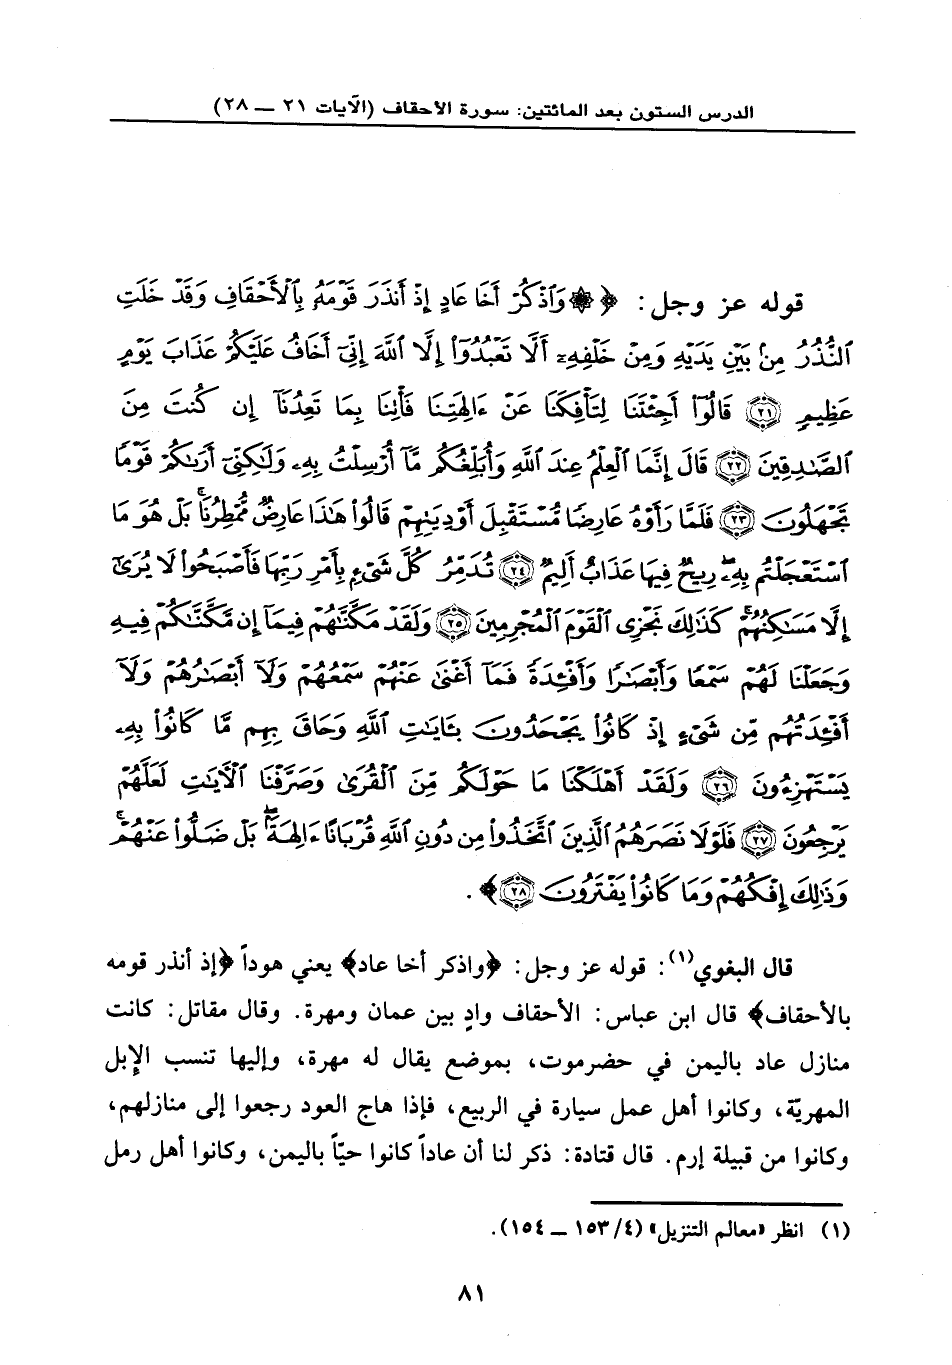 الدرس الستون بعد المائتين: سورة الأحقاف (الآيات ٢١ — ٢٨)
قوله عز وجل: ﴿۞ وَٱذۡكُرۡ أَخَا عَادٍ إِذۡ أَنذَرَ قَوۡمَهُۥ بِٱلۡأَحۡقَافِ وَقَدۡ خَلَتِ
ٱلنُّذُرُ مِنۢ بَيۡنِ يَدَيۡهِ وَمِنۡ خَلۡفِهِۦٓ أَلَّا تَعۡبُدُوٓاْ إِلَّا ٱللَّهَ إِنِّيٓ أَخَافُ عَلَيۡكُمۡ عَذَابَ يَوۡمٍ
عَظِيمٖ ٢١ قَالُوٓاْ أَجِئۡتَنَا لِتَأۡفِكَنَا عَنۡ ءَالِهَتِنَا فَأۡتِنَا بِمَا تَعِدُنَآ إِن كُنتَ مِنَ
ٱلصَّٰدِقِينَ ٢٢ قَالَ إِنَّمَا ٱلۡعِلۡمُ عِندَ ٱللَّهِ وَأُبَلِّغُكُم مَّآ أُرۡسِلۡتُ بِهِۦ وَلَٰكِنِّيٓ أَرَىٰكُمۡ قَوۡمٗا
تَجۡهَلُونَ ٢٣ فَلَمَّا رَأَوۡهُ عَارِضٗا مُّسۡتَقۡبِلَ أَوۡدِيَتِهِمۡ قَالُواْ هَٰذَا عَارِضٞ مُّمۡطِرُنَاۚ بَلۡ هُوَ مَا
ٱسۡتَعۡجَلۡتُم بِهِۦۖ رِيحٞ فِيهَا عَذَابٌ أَلِيمٞ ٢٤ تُدَمِّرُ كُلَّ شَيۡءِۭ بِأَمۡرِ رَبِّهَا فَأَصۡبَحُواْ لَا يُرَىٰٓ
إِلَّا مَسَٰكِنُهُمۡۚ كَذَٰلِكَ نَجۡزِي ٱلۡقَوۡمَ ٱلۡمُجۡرِمِينَ ٢٥ وَلَقَدۡ مَكَّنَّٰهُمۡ فِيمَآ إِن مَّكَّنَّٰكُمۡ فِيهِ
وَجَعَلۡنَا لَهُمۡ سَمۡعٗا وَأَبۡصَٰرٗا وَأَفۡـِٔدَةٗ فَمَآ أَغۡنَىٰ عَنۡهُمۡ سَمۡعُهُمۡ وَلَآ أَبۡصَٰرُهُمۡ وَلَآ
أَفۡـِٔدَتُهُم مِّن شَيۡءٍ إِذۡ كَانُواْ يَجۡحَدُونَ بِـَٔايَٰتِ ٱللَّهِ وَحَاقَ بِهِم مَّا كَانُواْ بِهِۦ
يَسۡتَهۡزِءُونَ ٢٦ وَلَقَدۡ أَهۡلَكۡنَا مَا حَوۡلَكُم مِّنَ ٱلۡقُرَىٰ وَصَرَّفۡنَا ٱلۡأٓيَٰتِ لَعَلَّهُمۡ
يَرۡجِعُونَ ٢٧ فَلَوۡلَا نَصَرَهُمُ ٱلَّذِينَ ٱتَّخَذُواْ مِن دُونِ ٱللَّهِ قُرۡبَانًا ءَالِهَةَۢۖ بَلۡ ضَلُّواْ عَنۡهُمۡۚ
وَذَٰلِكَ إِفۡكُهُمۡ وَمَا كَانُواْ يَفۡتَرُونَ ٢٨﴾.
قال البغوي(١): قوله عز وجل: ﴿واذكر أخا عاد﴾ يعني هوداً ﴿إذ أنذر قومه
بالأحقاف﴾ قال ابن عباس: الأحقاف وادٍ بين عمان ومهرة. وقال مقاتل: كانت
منازل عاد باليمن في حضرموت، بموضع يقال له مهرة، وإليها تنسب الإبل
المهريّة، وكانوا أهل عمل سيارة في الربيع، فإذا هاج العود رجعوا إلى منازلهم،
وكانوا من قبيلة إرم. قال قتادة: ذكر لنا أن عاداً كانوا حيّاً باليمن، وكانوا أهل رمل
(١) انظر «معالم التنزيل» (٤/ ١٥٣ — ١٥٤).
٨١